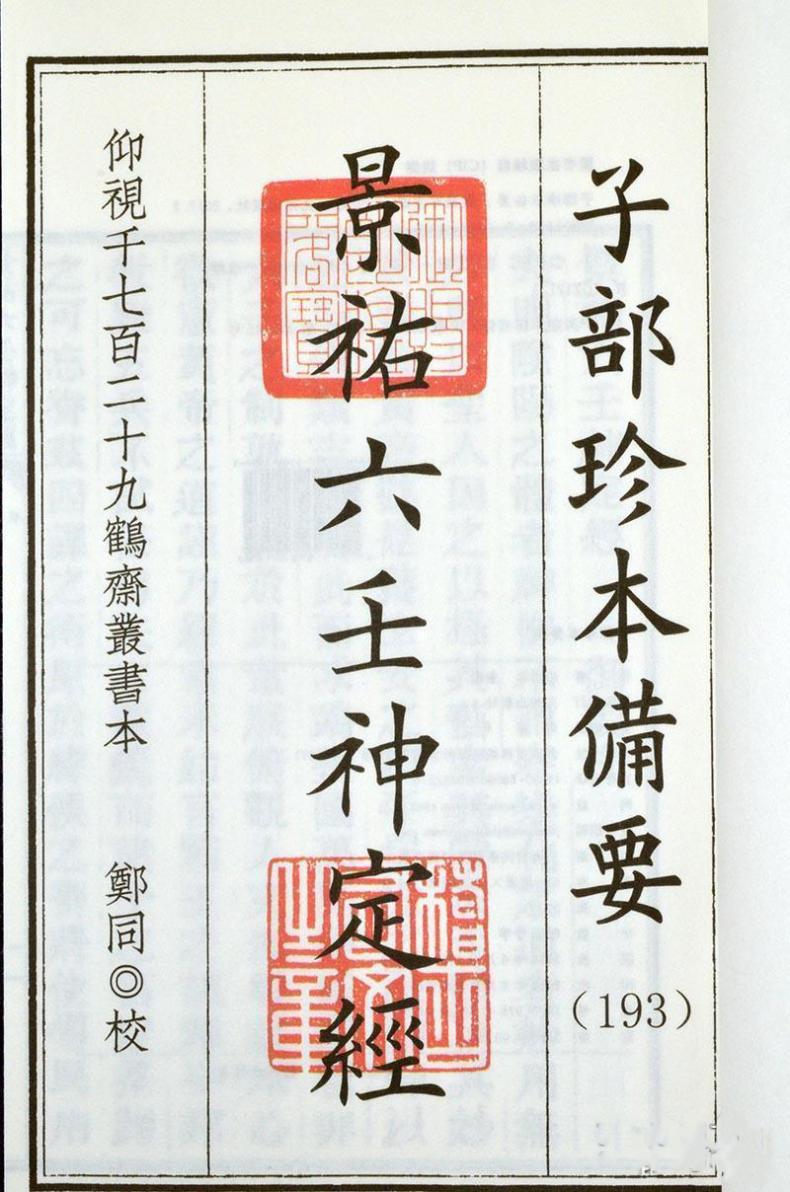 子部珍本備要
（193）
景祐六壬神定經
稽古
右文
之章
仰視千七百二十九鶴齋叢書本
鄭同◎校